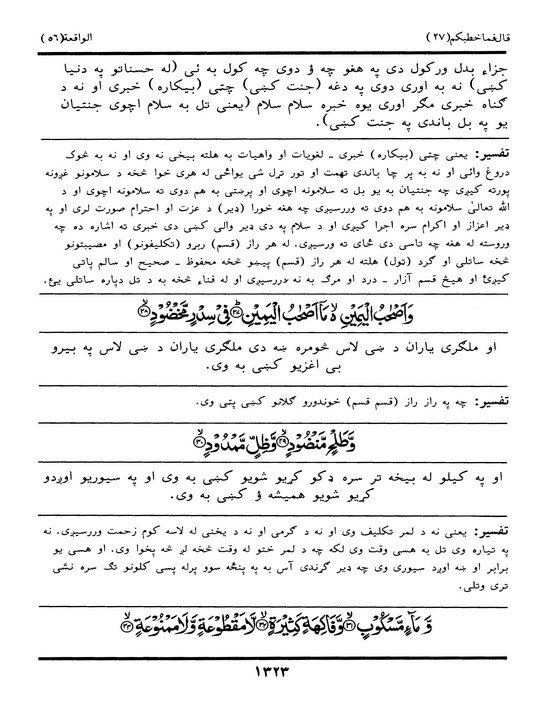 قال فما خطبکم (۲۷) الواقعة (۵۶)
جزاء بدل ورکول دی په هغو چه ؤ دوی چه کول به ئی (له حسناتو په دنیا
کښی) نه به اوری دوی په دغه (جنت کښی) چتی (بیکاره) خبری او نه د
گناه خبری مگر اوری یوه خبره سلام سلام (یعنی تل به سلام اچوی جنتیان
یو په بل باندی په جنت کښی).
تفسیر: یعنی چتی (بیکاره) خبری ـ لغویات او واهیات به هلته بیخی نه وی او نه به څوک
دروغ وائی او نه به پر چا باندی تهمت او تور تړل شی یواځی له هری خوا څخه د سلامونو غږونه
پورته کیږی چه جنتیان به یو بل ته سلامونه اچوی او پرښتی به هم دوی ته سلامونه اچوی او د
الله تعالیٰ سلامونه به هم دوی ته وررسیږی چه هغه خورا (ډیر) د عزت او احترام صورت لری او په
ډیر اعزاز او اکرام سره اجرا کیږی او د سلام په دی ډیر والی کښی دی خبری ته اشاره ده چه
وروسته له هغه چه تاسی دی ځای ته ورسیږی. له هر راز (قسم) ربړو (تکلیفونو) او مصیبتونو
څخه ساتلی او گرد (ټول) هلته له هر راز (قسم) پیښو څخه محفوظ ـ صحیح او سالم پاتی
کیږئ او هیڅ قسم آزار ـ درد او مرگ به نه دررسیږی او له فناء څخه به د تل دپاره ساتلی یئ.
وَاَصْحٰبُ الْیَمِیْنِ ۙ مَاۤ اَصْحٰبُ الْیَمِیْنِ ﴿۲۷﴾ فِیْ سِدْرٍ مَّخْضُوْدٍ ﴿۲۸﴾
او ملگری یاران د ښی لاس څومره ښه دی ملگری یاران د ښی لاس په بیرو
بی اغزیو کښی به وی.
تفسیر: چه په راز راز (قسم قسم) خوندورو گلانو کښی پټی وی.
وَّطَلْحٍ مَّنْضُوْدٍ ﴿۲۹﴾ وَّظِلٍّ مَّمْدُوْدٍ ﴿۳۰﴾
او په کیلو له بیخه تر سره ډکو کړیو شویو کښی به وی او په سیوریو اوږدو
کړیو شویو همیشه ؤ کښی به وی.
تفسیر: یعنی نه د لمر تکلیف وی او نه د گرمی او نه د یخنی له لاسه کوم زحمت وررسیږی. نه
په تیاره وی تل به هسی وقت وی لکه چه د لمر ختو له وقت څخه لږ څه پخوا وی. او هسی یو
برابر او ښه اوږد سیوری وی چه ډیر گړندی آس به په پنځه سوو پرله پسی کلونو تگ سره نشی
تری وتلی.
وَّمَآءٍ مَّسْکُوْبٍ ﴿۳۱﴾ وَّفَاکِهَةٍ کَثِیْرَةٍ ﴿۳۲﴾ لَّا مَقْطُوْعَةٍ وَّلَا مَمْنُوْعَةٍ ﴿۳۳﴾
۱۳۲۳